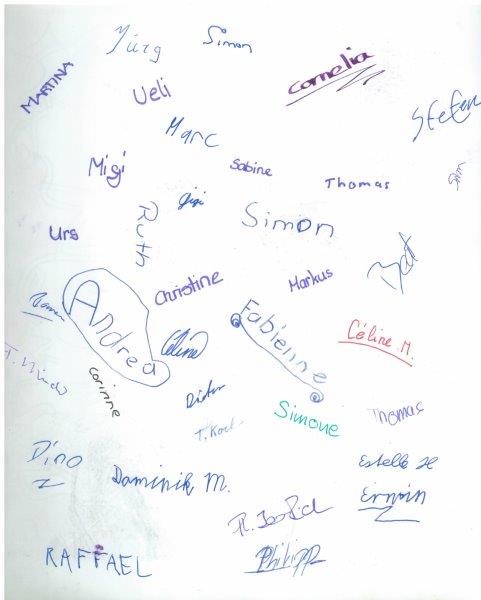 Jürg
Simon
Cornelia
MARTINA
Ueli
Stefan
Marc
Migi
Sabine
Thomas
Gigi
Ruth
Simon
Urs
Beat
Christine
Markus
Andrea
Fabienne
Céline
Céline M.
Corinne
Dieter
Simone
Thomas
T. Koch
Dino
Daminik M.
Estelle
Erwin
Philipp
RAFFAEL